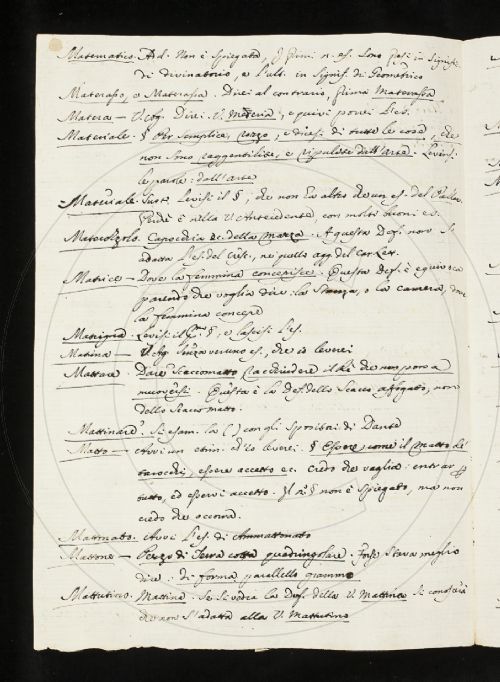 Matematico. Ad. Non è Spiegato, I primi n. es. sono presi in signif.
di divinatorio, e l'ult. in signif. di Geometrico
Materasso, e Matrassa. Direi al contrario, prima Materassa
Matera — V. ang. Direi. V. Materia, e quivi porrei l'es.
Materiale. § Per Semplice, rozzo, e dicesi di tutte le cose, che
non sono raggentilite, e ripulite dall'arte. Levisi
le parole: dall'arte
Materiale. Sust. Levisi il §, che non ha altro che un es. del
che è nella V. Antecedente con molti buoni es.
Materozzolo. Capocchia ec. della Mazza. A questa Defi. non si
adatta l'es. del Cresc., nè quello agg. del
Matrice — Dove la femmina concepisce. Questa def. è equivoca
parendo che voglia dire: la Stanza, o la camera, dove
la femmina concepe
Matrigna. Levisi il §, e lascisi l'es.
Mattina — V. ang. Senza veruno es., che io leverei
Mattare — Dare Scaccomatto. Racchiudere il Rè che non possa
muoversi. Questa è la def. dello Scacco affogato, non
dello Scaccomatto.
Mattinare? Si esam. la ( ) con gli Spositori di Dante
Matto — Avvi un etim. ch'io leverei. § Essere come il Matto fra'
tarocchi, essere accetto ec. credo che vaglia: entrar per
tutto, ed esservi accetto. Il 2.° § non è Spiegato, ma non
credo che occorra.
Mattonato. Avvi l'es. di Ammattonato
Mattone — Pezzo di Terra cotta quadrangolare. Forse stava meglio
dire: di forma parallelo gramma
Mattutino. Mattina. Se si vedrà la Def. della V. Mattina si conoscerà
che non s'adatta alla V. Mattutino